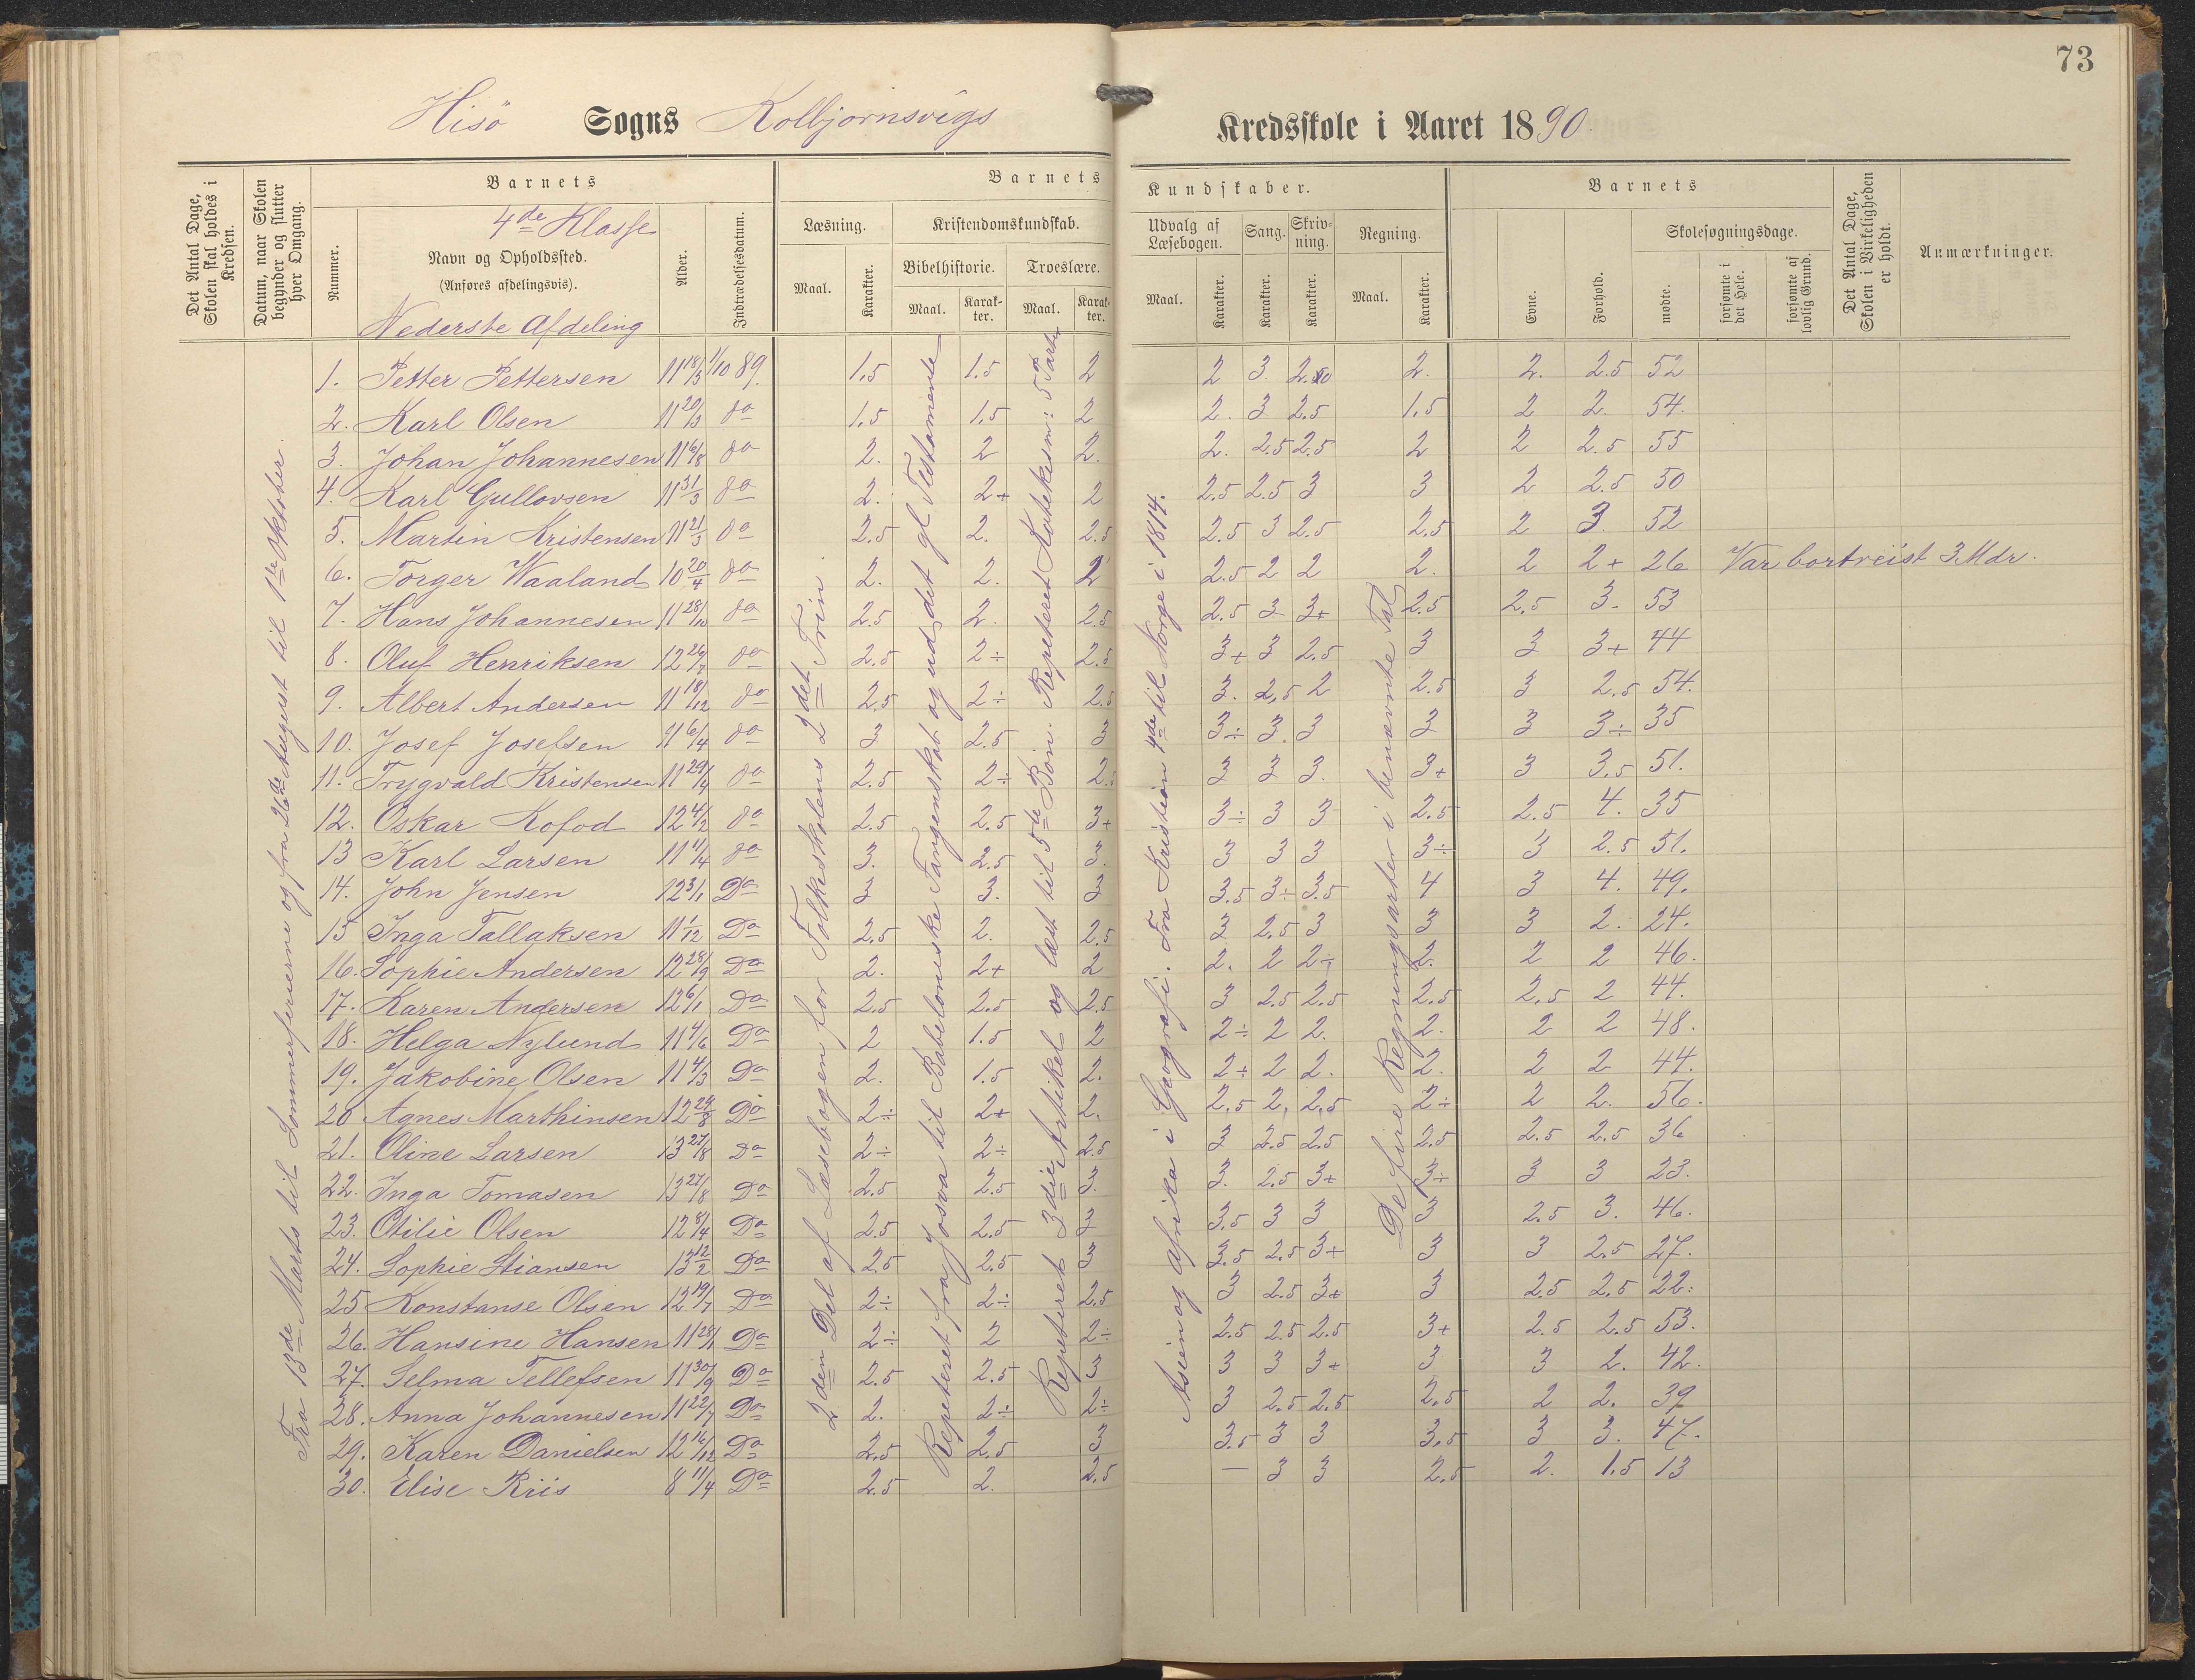 73
Hisö Sogns Kolbjørnsvigs Kredsskole i Aaret 1890.
Det Antal Dage, Skolen skal holdes i Kredsen.
Datum, naar Skolen begynder og slutter hver Omgang.
Barnets
Nummer.
4de Klasse
Navn og Opholdssted.
(Anføres afdelingsvis).
Nederste Afdeling
Alder.
Indtrædelsesdatum.
Barnets Kundskaber.
Læsning. Maal. Karakter.
Kristendomskundskab.
Bibelhistorie. Maal. Karakter.
Troeslære. Maal. Karakter.
Udvalg af Læsebogen. Maal. Karakter.
Sang. Karakter.
Skrivning. Karakter.
Regning. Maal. Karakter.
Barnets
Evne. Forhold.
Skolesøgningsdage.
mødte. forsømte i det Hele. forsømte af lovlig Grund.
Det Antal Dage, Skolen i Virkeligheden er holdt.
Anmærkninger.
Fra 13de Marts til Sommerferierne og fra 26de August til 1ste Oktober.
2den Del af Læsebogen for Folkeskolens 2det Trin.
Repeteret fra Josva til Babeloneske Fangenskab og ud det gl Testamente
Repeteret 3die Artikel og læst til 5te Bøn. Repeteret Katekesm: 5 Parter
Asien og Afrika i Geografi. Fra Kristian 4de til Norge i 1814.
De fire Regningsarter i benævnte Tal
1. Petter Pettersen 11 18/3 1/10 89. 1,5 1.5 2 2 3. 2. 2. 2.5 52
2. Karl Olsen 11 20/3 do 1,5 1,5 2 2. 3 2.5 1,5 2 2. 54.
3. Johan Johannesen 11 6/8 do 2. 2 2. 2. 2.5 2.5 2 2 2.5 55
4. Karl Gullovsen 11 31/3 do 2. 2+ 2 2.5 2.5 3 3 2 2.5 50
5. Martin Kristensen 11 21/3 do 2.5 2. 2.5 2.5 3 2.5 2,5 2 3 52
6. Torger Waaland 10 20/4 do 2. 2. 2 2.5 2 2 2. 2 2+ 26 Var bortreist 3. Mdr.
7. Hans Johannesen 11 28/10 do 2.5 2. 2.5 2.5 3 3+ 2.5 2,5 3. 53
8. Oluf Henriksen 12 26/7 do 2.5 2÷ 2.5 3+ 3 2.5 3 3 3+ 44
9. Albert Andersen 11 18/12 do 2.5 2÷ 2.5 3. 2,5 2 2.5 3 2.5 54.
10. Josef Josefsen 11 6/4 do 3 2.5 3 3÷ 3. 3 3 3 3÷ 35
11. Trygvald Kristensen 11 29/4 do 2.5 2÷ 2.5 3 3 3. 3+ 3 3.5 51.
12. Oskar Kofod 12 4/2 do 2.5 2.5 3+ 3÷ 3 3 2.5 2.5 4. 35
13 Karl Larsen 11 4/4 do 3. 2.5 3. 3 3 3 3÷ 3 2.5 51.
14. John Jensen 12 3/1 Do 3 3. 3 3.5 3÷ 3.5 4 3 4. 49.
15 Inga Tallaksen 11 1/12 Do 2,5 2. 2,5 3 2.5 3 3 3 2. 24.
16. Sophie Andersen 12 28/9 Do 2. 2+ 2 2. 2 2÷ 2. 2 2 46.
17. Karen Andersen 12 6/1 Do 2.5 2.5 2.5 3 2.5 2.5 2.5 2,5 2 44.
18. Helga Nylund 11 4/6 Do 2 1.5 2 2÷ 2 2. 2. 2 2 48.
19. Jakobine Olsen 11 4/3 Do 2. 1.5 2. 2÷ 2 2. 2. 2 2 44.
20 Agnes Marthinsen 12 29/8 Do 2÷ 2+ 2. 2.5 2. 2.5 2÷ 2 2. 56.
21. Oline Larsen 13 27/8 Do 2÷ 2÷ 2.5 3 2.5 2.5 2.5 2.5 2.5 36
22. Inga Tomasen 13 27/8 Do 2.5 2.5 3. 3. 2.5 3+ 3÷ 3 3 23.
23. Otilie Olsen 12 8/4 Do 2.5 2.5 3 3.5 3 3 3 2.5 3. 46.
24. Sophie Stiansen 13 12/2 Do 2.5 2.5 3 3.5 2.5 3+ 3 3 2.5 27.
25 Konstanse Olsen 12 19/7 Do 2÷ 2÷ 2.5 3 2.5 3+ 3 2.5 2.5 22.
26. Hansine Hansen 11 28/1 Do 2÷ 2 2÷ 2.5 2.5 2.5 3+ 2.5 2.5 53.
27. Selma Tellefsen 11 30/9 Do 2.5 2.5 3 3 3 3+ 3 3 2. 42.
28. Anna Johannesen 11 22/7 Do 2. 2÷ 2÷ 3 2.5 2.5 2.5 2 2. 39
29. Karen Danielsen 12 16/12 Do 2.5 2.5 3 3.5 3 3 3,5 3 3. 47.
30. Elise Riis 8 11/4 Do 2.5 2. 2.5 — 3 3 2.5 2. 1.5 13